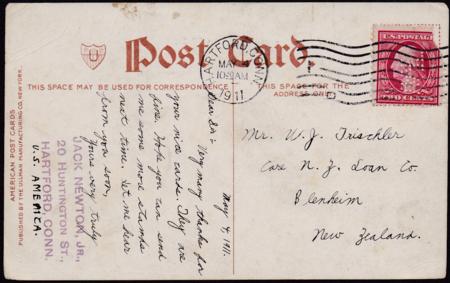 Post Card
THIS SPACE MAY BE USED FOR CORRESPONDENCE
THIS SPACE IS FOR THE
ADDRESS ONLY
HARTFORD, CONN.
MAY
1911
U.S. POSTAGE
TWO CENTS
May 4, 1911.
Dear Sir:- Very many thanks for
your nice cards. They are
fine. Hope you can send
me some more stamps
next time. Let me hear
from you soon,
Yours very truly
JACK NEWTON, JR.,
20 HUNTINGTON ST.,
HARTFORD, CONN.
U.S. AMERICA.
Mr. W. J. Trischler
Care N. Z. Loan Co.
Blenheim
New Zealand.
AMERICAN POST CARDS
PUBLISHED BY THE ULLMAN MANUFACTURING CO. NEW YORK